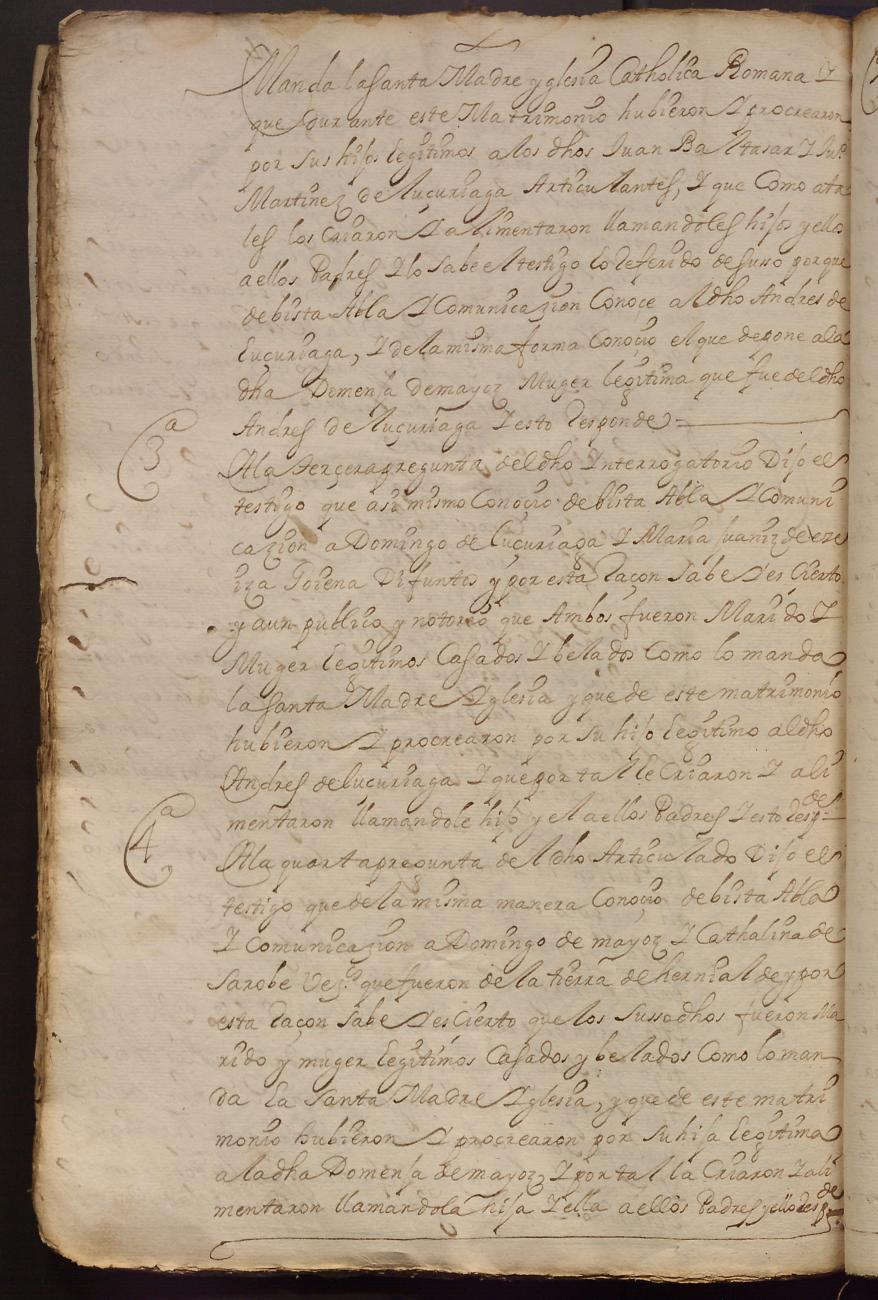 Manda la santa Madre yglesia Catholica Romana Y
que durante este Matrimonio hubieron Y procrearon
por sus hijos legitimos a los dhos Juan Baltasar Y Juº
Martinez de lucuriaga Articulantes, Y que Como ata
les los Criaron Y alimentaron llamandoles hijos y ellos
aellos Padres Ylo sabe el testigo lo Referido desuso porque
debista Abla Y Comunicazion Conoce aldho Andres de
Lucuriaga, Y dela misma forma Conoçio el que depone ala
dha Domenja demayoz Muger legitima que fue deldho
Andres de luçuriaga Y esto Responde=
3ª
Ala terçera pregunta deldho Interrogatorio Dijo el
testigo que asi mismo Conoçio debista Abla Y Comuni
cazion a Domingo de Luçuriaga Y Maria Juaniz de eze
iza Goiena Difuntos y por esta Raçon Sabe Y es Cierto
y aun publico y notorio que Ambos fueron Marido Y
Muger legitimos Casados Y belados Como lo manda
la santa Madre Yglesia y que de este matrimonio
hubieron Y procrearon por su hijo legitimo aldho
Andres de luçuriaga Y que por tal le Criaron Y ali
mentaron llamandole hijo y el aellos Padres Y esto Respde=
4ª
Ala quarta pregunta deldho Articulado Dijo el
testigo que de la misma manera Conoçio debista Abla
Y Comunicazion a Domingo de mayoz Y Cathalina de
Sarobe Vezºs que fueron de la tierra de hernialde y por
esta Raçon sabe Y es Cierto que los Sussodhos fueron Ma
rido y muger legitimos Casados y belados Como lo man
da la Santa Madre Yglesia, y que de este matri
monio hubieron Y procrearon por su hija legitima
a ladha Domenja de mayoz, Y por tal la Criaron Y ali
mentaron llamandola hija Y ella a ellos Padres y ello Respde=